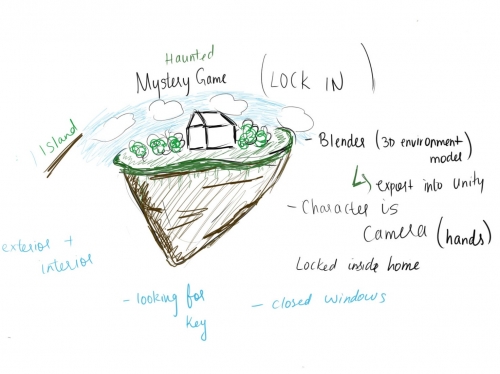 Haunted
Mystery Game (LOCK IN)
Island
- Blender (3D environment
model)
↳ export into Unity
- Character is
Camera (hands)
Locked inside home
exterior +
interior
- looking for
key
- closed windows